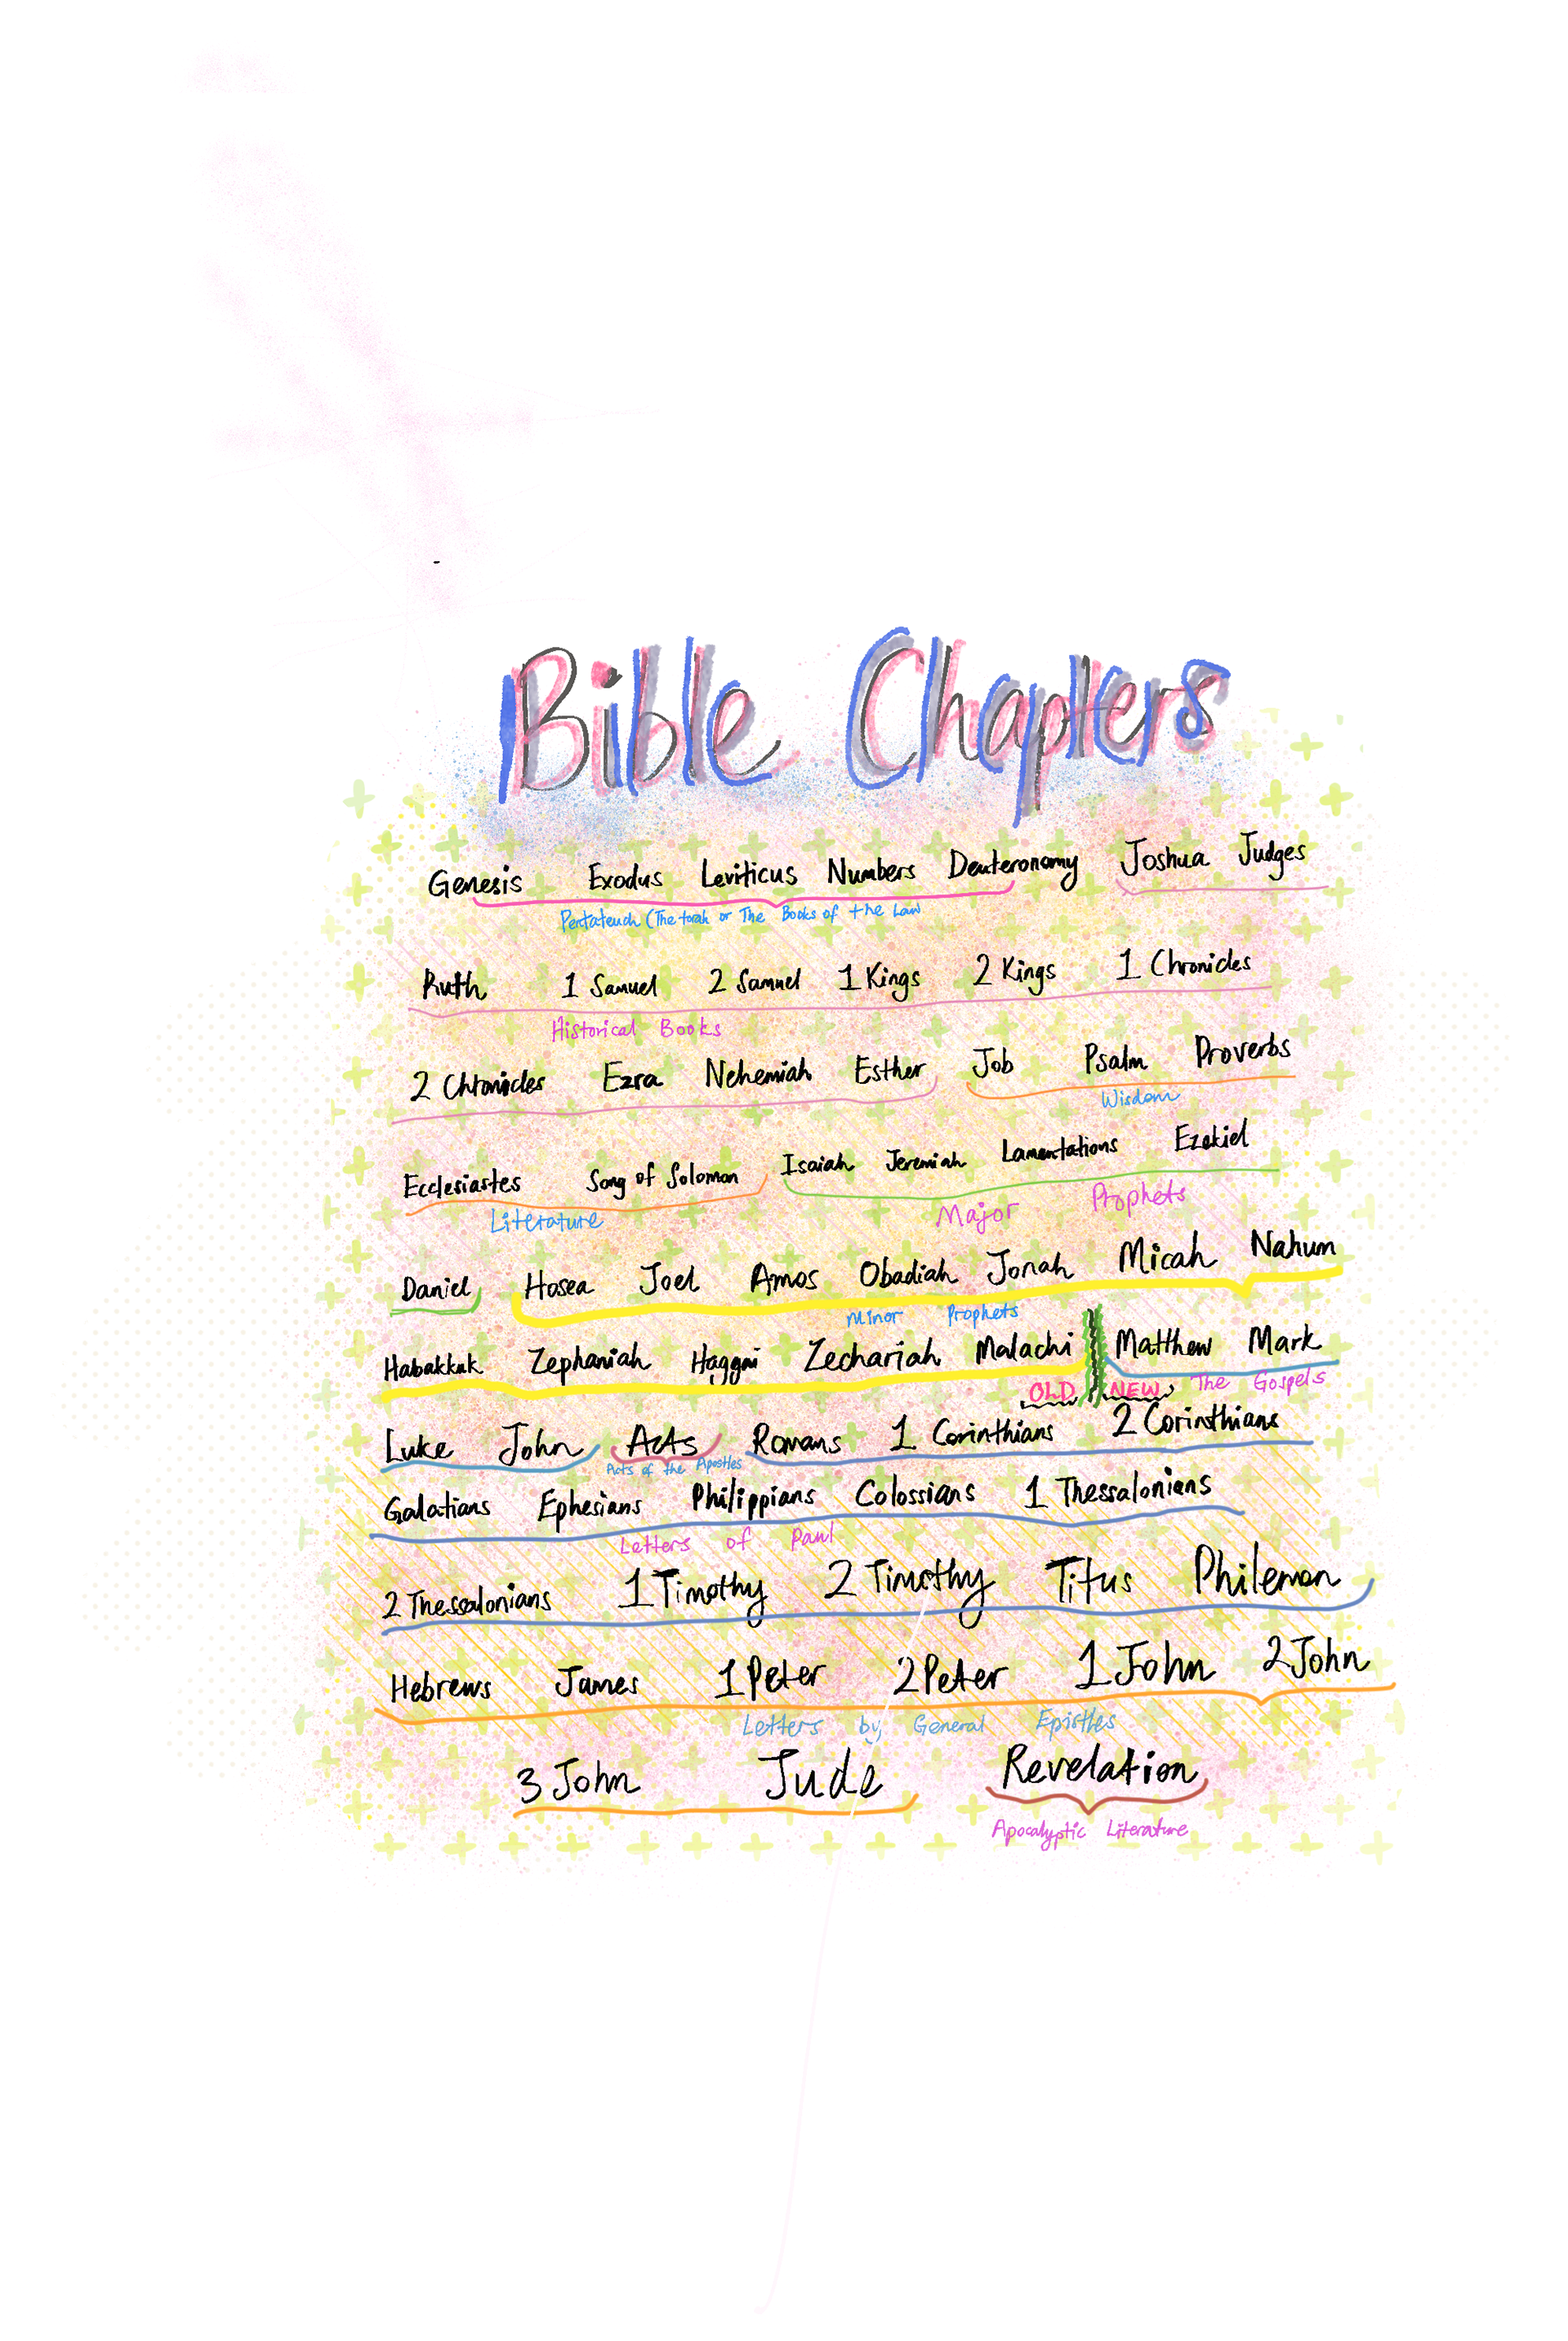 Bible Chapters
Genesis Exodus Leviticus Numbers Deuteronomy Joshua Judges
Pentateuch (The torah or The Books of the Law
Ruth 1 Samuel 2 Samuel 1 Kings 2 Kings 1 Chronicles
Historical Books
2 Chronicles Ezra Nehemiah Esther Job Psalm Proverbs
Wisdom
Ecclesiastes Song of Solomon Isaiah Jeremiah Lamentations Ezekiel
Literature Major Prophets
Daniel Hosea Joel Amos Obadiah Jonah Micah Nahum
Minor Prophets
Habakkuk Zephaniah Haggai Zechariah Malachi Matthew Mark
OLD NEW The Gospels
Luke John Acts Romans 1 Corinthians 2 Corinthians
Acts of the Apostles
Galatians Ephesians Philippians Colossians 1 Thessalonians
Letters of Paul
2 Thessalonians 1 Timothy 2 Timothy Titus Philemon
Hebrews James 1 Peter 2 Peter 1 John 2 John
Letters by General Epistles
3 John Jude Revelation
Apocalyptic Literature